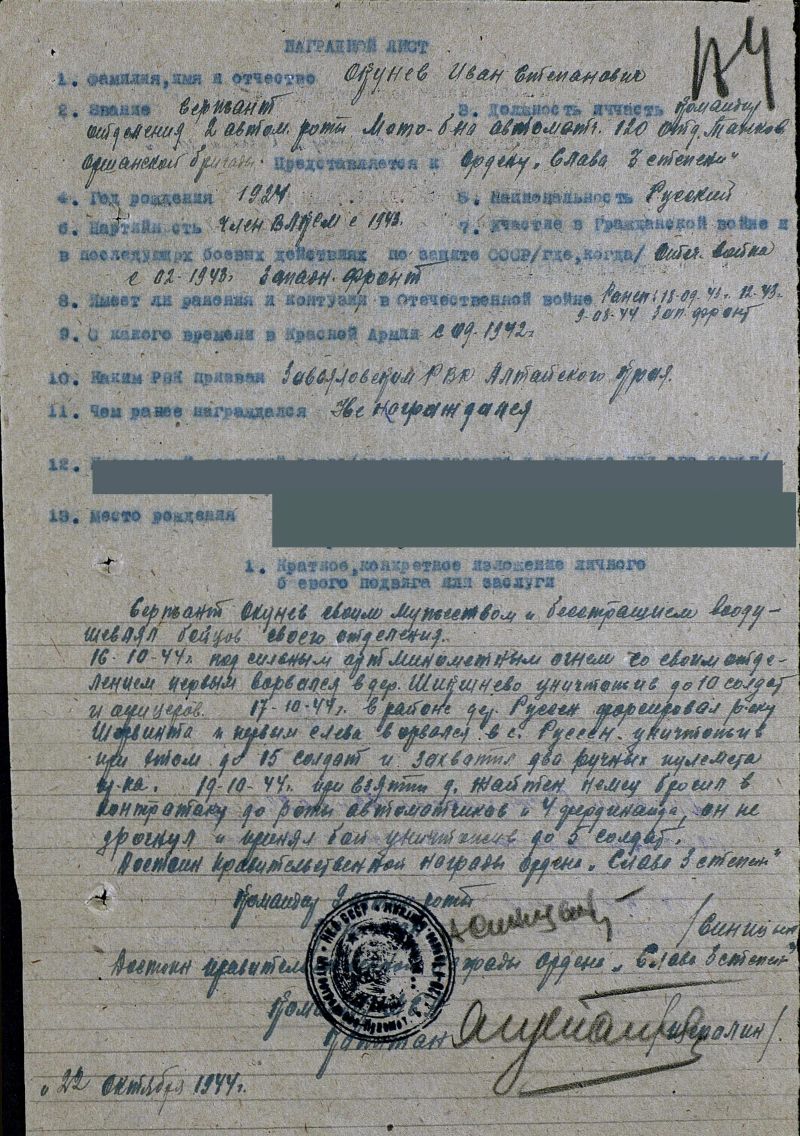 НАГРАДНОЙ ЛИСТ
1. Фамилия, имя и отчество Окунев Иван Степанович
2. Звание Сержант 3. Должность и часть Командир
отделения 2 автом. роты Мото-б-на автомат. 120 отд. Танков
Оршанской бригады. Представляется к Ордену „Слава 3 степени"
4. Год рождения 1924 5. Национальность Русский
6. Партийность Член ВЛКСМ с 1943г. 7. Участие в Гражданской войне и
в последующих боевых действиях по защите СССР/где, когда/ Отеч. война
с 02-1943г. Западн. фронт
8. Имеет ли ранения и контузии в Отечественной войне
9-08-44 Зап. фронт
9. С какого времени в Красной Армии с 09.1942г
10. Каким РВК призван Завьяловским РВК Алтайского края.
11. Чем ранее награждался Не награждался
12.
13. Место рождения
1. Краткое, конкретное изложение личного
боевого подвига или заслуги
Сержант Окунев своим мужеством и бесстрашием вооду-
шевлял бойцов своего отделения.
16-10-44г. под сильным арт миномётным огнем со своим отде-
лением первым ворвался в дер. уничтожив до 10 солдат
и офицеров. 17-10-44г. в районе дер. Руссен форсировал реку
Шервинта и первым слева ворвался в с. Руссен уничтожив
при этом до 15 солдат и захватил два ручных пулемета
пр-ка. 19-10-44г. при взятии д. немец бросил в
контратаку до роты автоматчиков и 4 фердинанда, он не
дрогнул и принял бой уничтожив до 5 солдат.
Достоин правительственной награды ордена „Слава 3 степени"
Командир роты
/Синицын
Достоин правител награды ордена „Слава 3 степен"
Капитан
„22 октября 1944г.